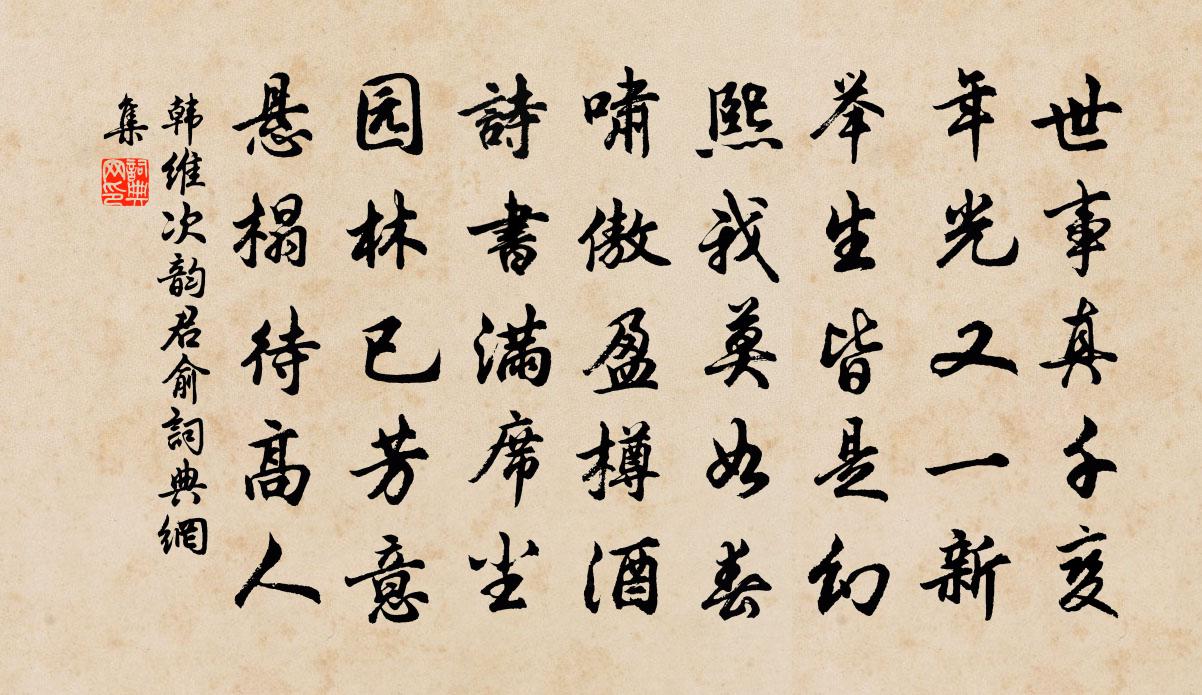 世事真千变
年光又一新
举生皆是幻
熙我莫如春
嘯傲盈樽酒
詩書满席尘
园林已芳意
悬榻待高人
韩維次韵君俞詞典網
集
詞典
网印